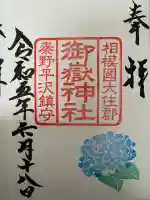 奉拝
相模國大住郡
御嶽神社
秦野平沢鎮守
令和五年六月十八日